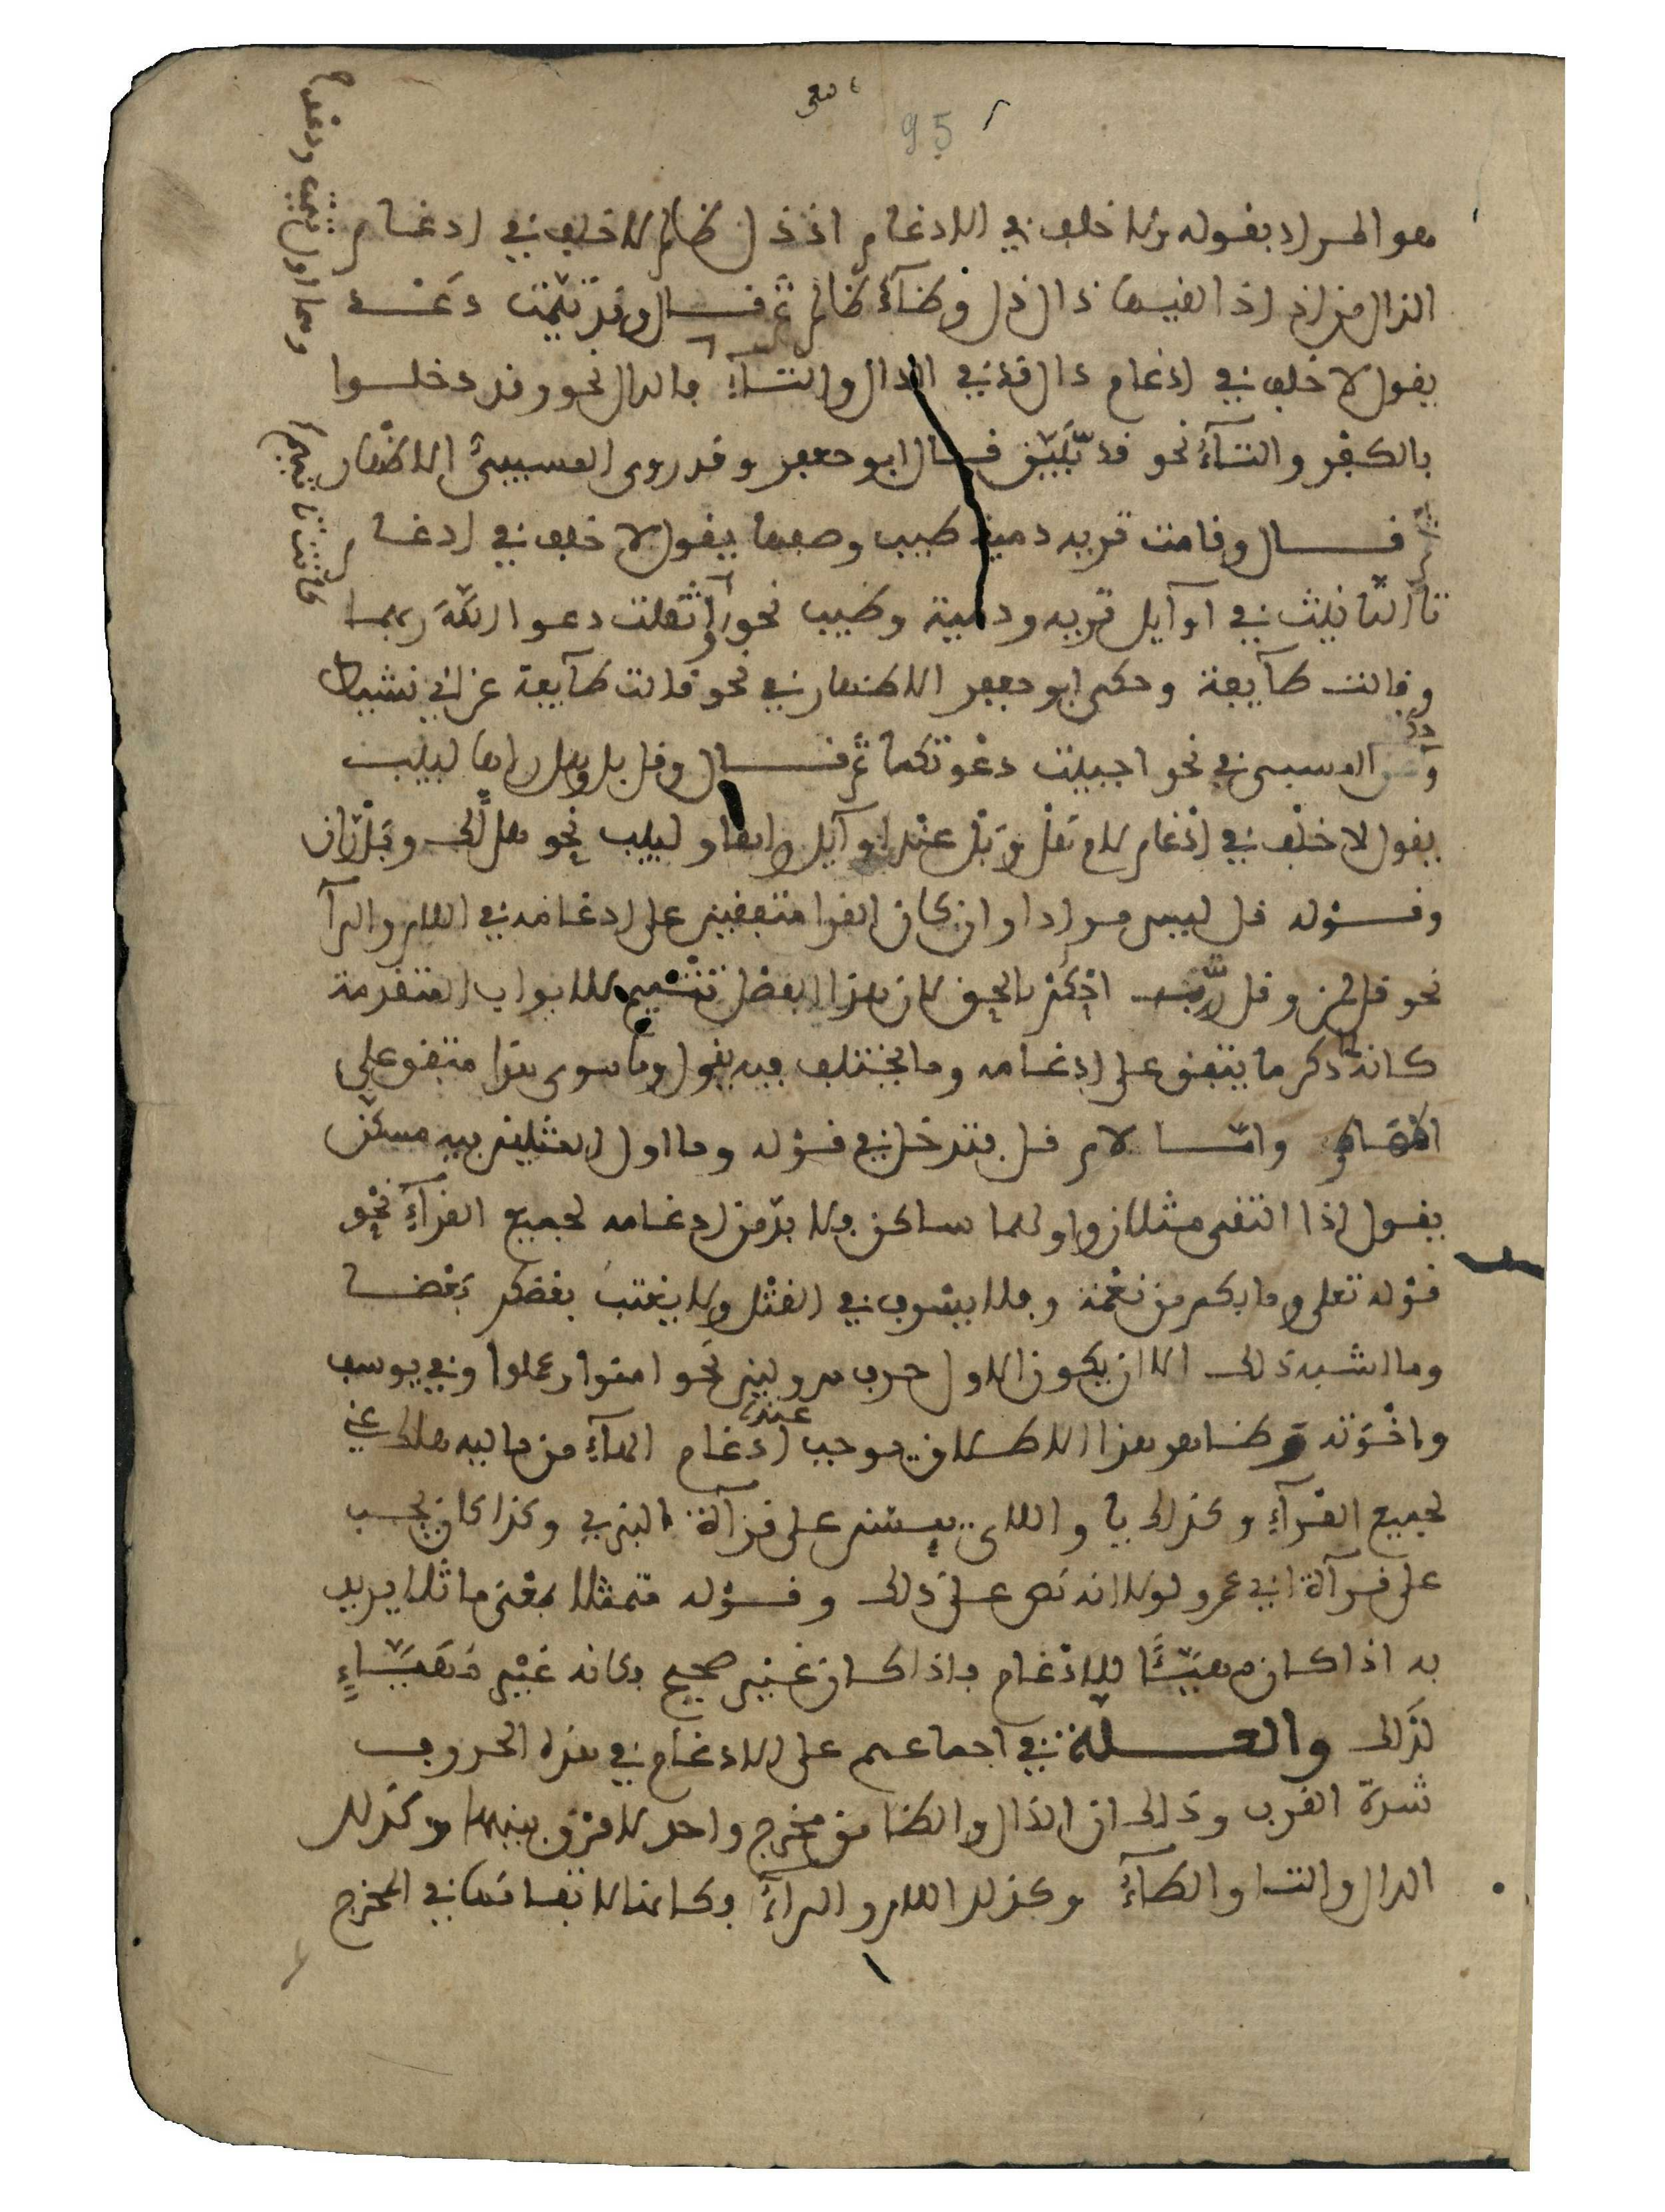 95
هو المراد بقوله ولا خلف في الادغام اذ ذل ظالم لا خلف في ادغام
الذال من اذ اذا لقيها ذال ذل وظاء ظالم ثم قال وقد تيمت دعد
يقول لا خلف في ادغام دال قد في الدال والتاء فالدال نحو وقد دخلوا
بالكفر والتاء نحو قد تبين قال ابو جعفر وقد روى المسيبي الاظهار
قال وقامت تريه دمية طيب وصفها يقول لا خلف في ادغام
تا التانيث في اوايل تريه ودمية وطيب نحو اثقلت دعوا الله ربهما
وقالت طايفة وحكى ابو جعفر الاظهار في نحو قالت طايفة عن ابي نشيط
وعن المسيبي في نحو اجيبت دعوتكما ثم قال وقل بل وهل راها لبيب
يقول لا خلف في ادغام لام هل وبل عند اوايل راها ولبيب نحو هل لك وبل ران
وقوله قل ليس مرادا وان كان القرا متفقين على ادغامه في اللام والرا
نحو قل لمن وقل رب لان هذا الفصل تتميم للابواب المتقدمة
كانه ذكر ما يتفق على ادغامه وما يختلف فيه يقول وما سوى هذا متفق على
واما لام قل فتدخل في قوله وما اول المثلين فيه مسكن
يقول اذا التقى مثلان واولهما ساكن فلا بد من ادغامه لجميع القراء نحو
قوله تعلى وما بكم من نعمة وفلا يسرف في القتل ولا يغتب بعضكم بعضا
وما اشبه ذلك الا ان يكون الاول حرف مد ولين نحو امنوا وعملوا وفي يوسف
واخوته وظاهر هذا الاطلاق يوجب ادغام عنده الهاء من ماليه هلك عني
لجميع القراء وكذلك يا واللاي يئسن على قراءة البزي وكذا كان يجب
على قراءة ابي عمرو لولا انه نص على ذلك وقوله متمثلا بمعنى ماثلا يريد
به اذا كان مهيئا للادغام واذا كان غير صحيح فكانه غير مهياء
لذلك والعلة في اجماعهم على الادغام في هذه الحروف
شدة القرب وذلك ان الذال والظا من مخرج واحد لا فرق بينهما وكذلك
الدال والتا والطاء وكذلك اللام والراء وكانما لاتفاقهما في المخرج